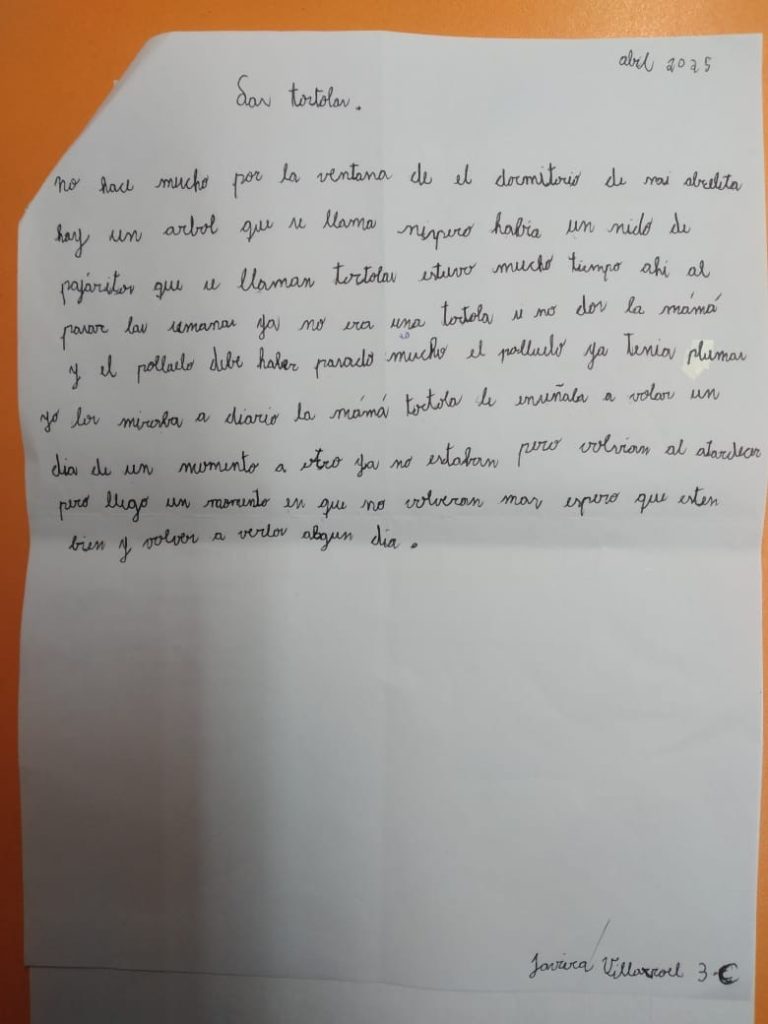 abril 2025
Las tortolas.
no hace mucho por la ventana de el dormitorio de mi abuelita
hay un arbol que se llama nispero habia un nido de
pajáritos que se llaman tortolas estuvo mucho tiempo ahi al
pasar las semanas ya no era una tortola si no dos la mámá
y el polluelo debe haber pasado mucho el polluelo ya tenia plumas
yo los miraba a diario la mámá tortola le enseñaba a volar un
dia de un momento a otro ya no estaban pero volvian al atardecer
pero llego un momento en que no volveran mas espero que esten
bien y volver a verlos algun dia.
Javiera Villarroel 3-C